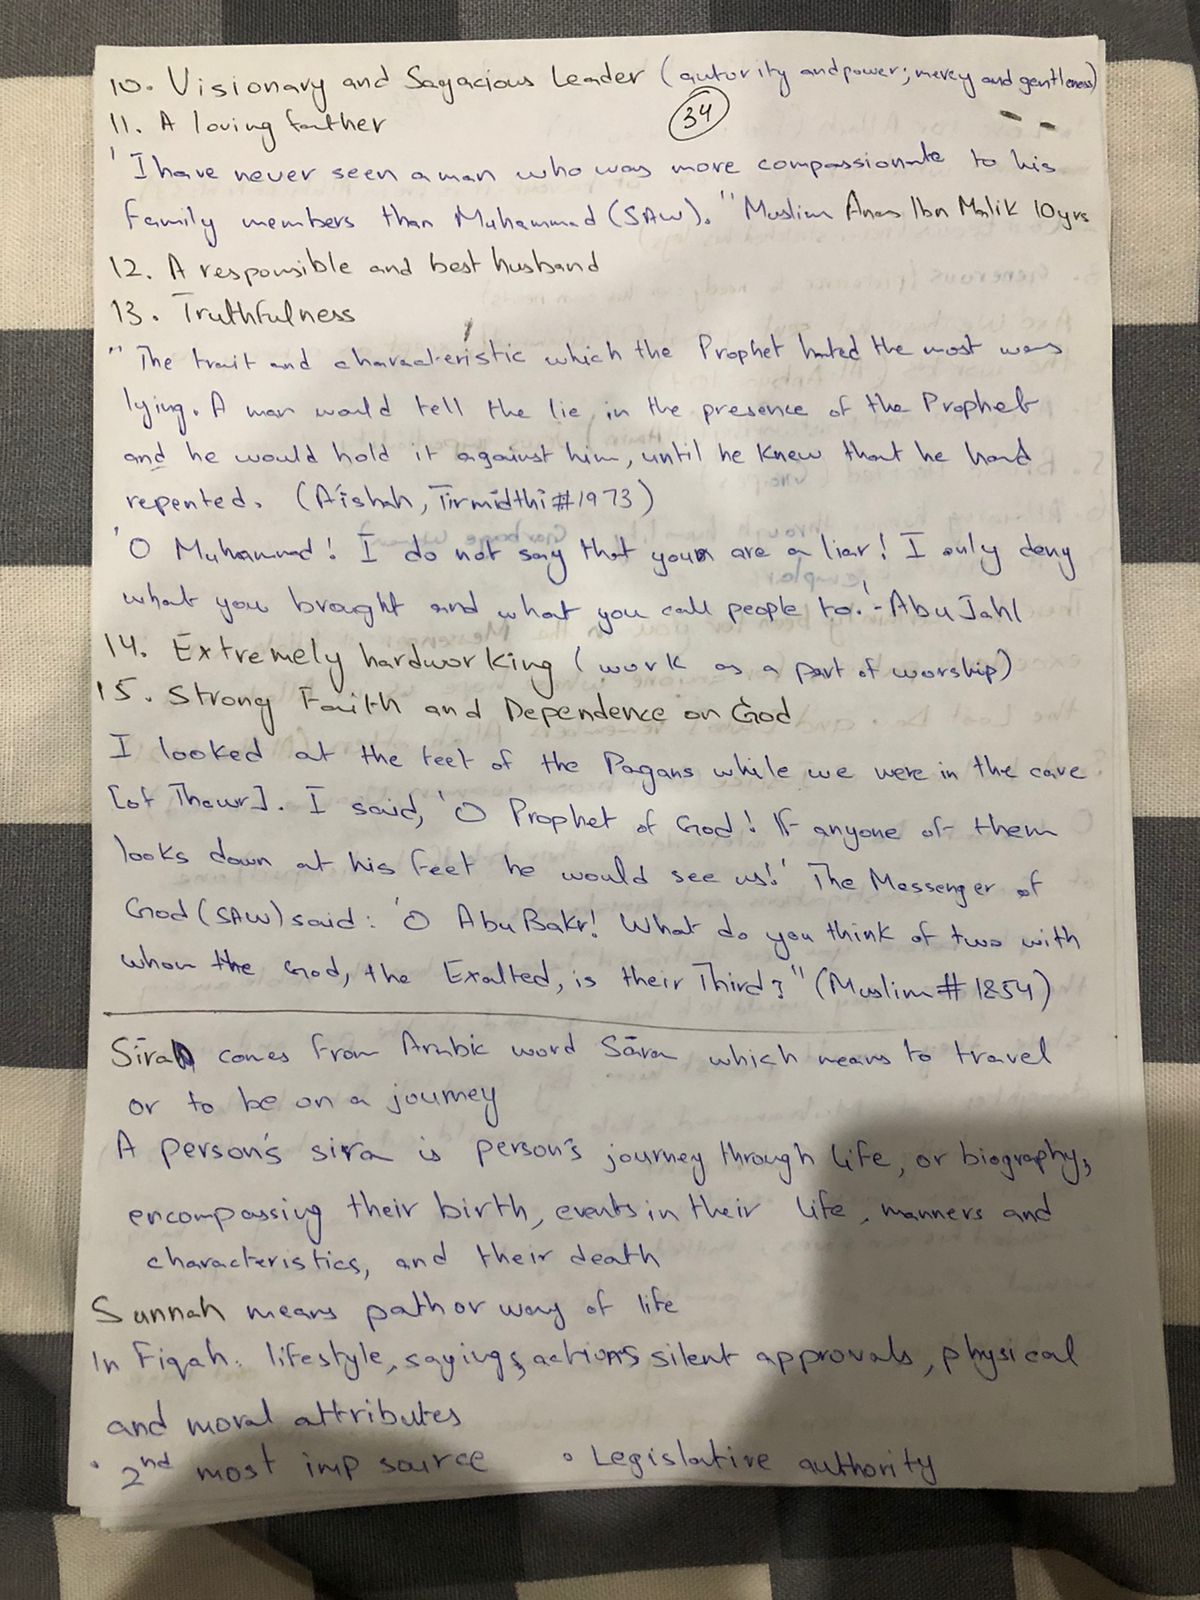 10. Visionary and Sagacious Leader (autority and power; mercy and gentleness)
34
11. A loving father
'I have never seen a man who was more compassionate to his
family members than Muhammad (SAW)." Muslim Anas Ibn Malik 10yrs
12. A responsible and best husband
13. Truthfulness
"The trait and characteristic which the Prophet hated the most was
lying. A man would tell the lie in the presence of the Prophet
and he would hold it against him, until he knew that he had
repented. (A'ishah, Tirmidthi #1973)
'O Muhammad! I do not say that you are a liar! I only deny
what you brought and what you call people to.' - Abu Jahl
14. Extremely hardworking (work as a part of worship)
15. Strong Faith and Dependence on God
I looked at the feet of the Pagans while we were in the cave
[of Thawr]. I said, 'O Prophet of God! If anyone of them
looks down at his feet he would see us!' The Messenger of
God (SAW) said: 'O Abu Bakr! What do you think of two with
whom the God, the Exalted, is their Third?" (Muslim # 1854)
Sirah comes from Arabic word Sāra which means to travel
or to be on a journey
A person's sira is person's journey through life, or biography,
encompassing their birth, events in their life, manners and
characteristics, and their death
Sunnah means path or way of life
In Fiqah: lifestyle, sayings, actions silent approvals, physical
and moral attributes
• 2nd most imp source • Legislative authority